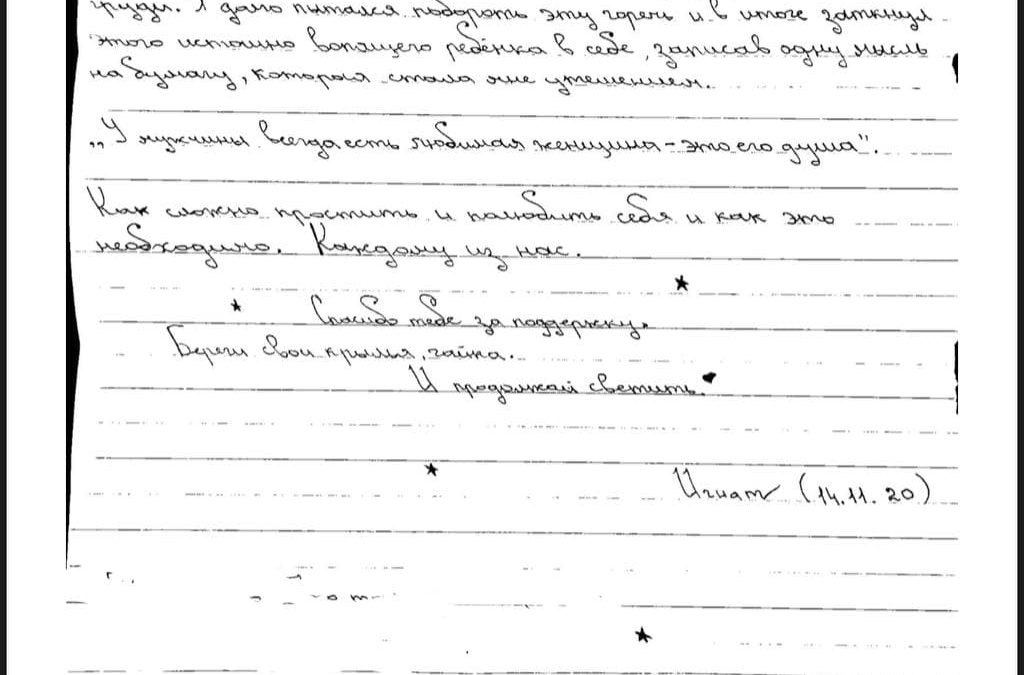 груди. Я долго пытался побороть эту горечь и в итоге заткнул
этого истошно вопящего ребёнка в себе, записав одну мысль
на бумагу, которая стала мне утешением.
„У мужчины всегда есть любимая женщина - это его душа".
Как сложно простить и полюбить себя и как это
необходимо. Каждому из нас.
Спасибо тебе за поддержку.
Береги свои крылья, чайка.
И продолжай светить.
Игнат (14.11.20)